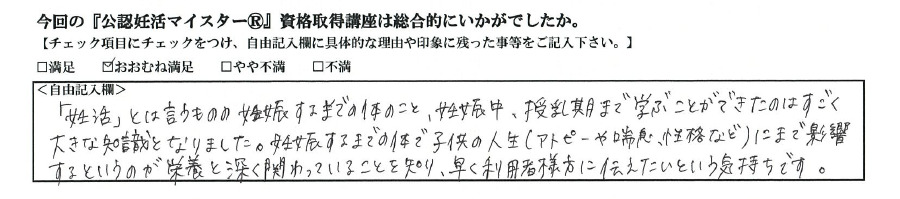 今回の『公認妊活マイスター®』資格取得講座は総合的にいかがでしたか。
【チェック項目にチェックをつけ、自由記入欄に具体的な理由や印象に残った事等をご記入下さい。】
□満足 ☑おおむね満足 □やや不満 □不満
＜自由記入欄＞
「妊活」とは言うものの妊娠するまでの体のこと、妊娠中、授乳期まで学ぶことができたのはすごく
大きな知識となりました。妊娠するまでの体で子供の人生(アトピーや喘息、性格など)にまで影響
するというのが栄養と深く関わっていることを知り、早く利用者様方に伝えたいという気持ちです。